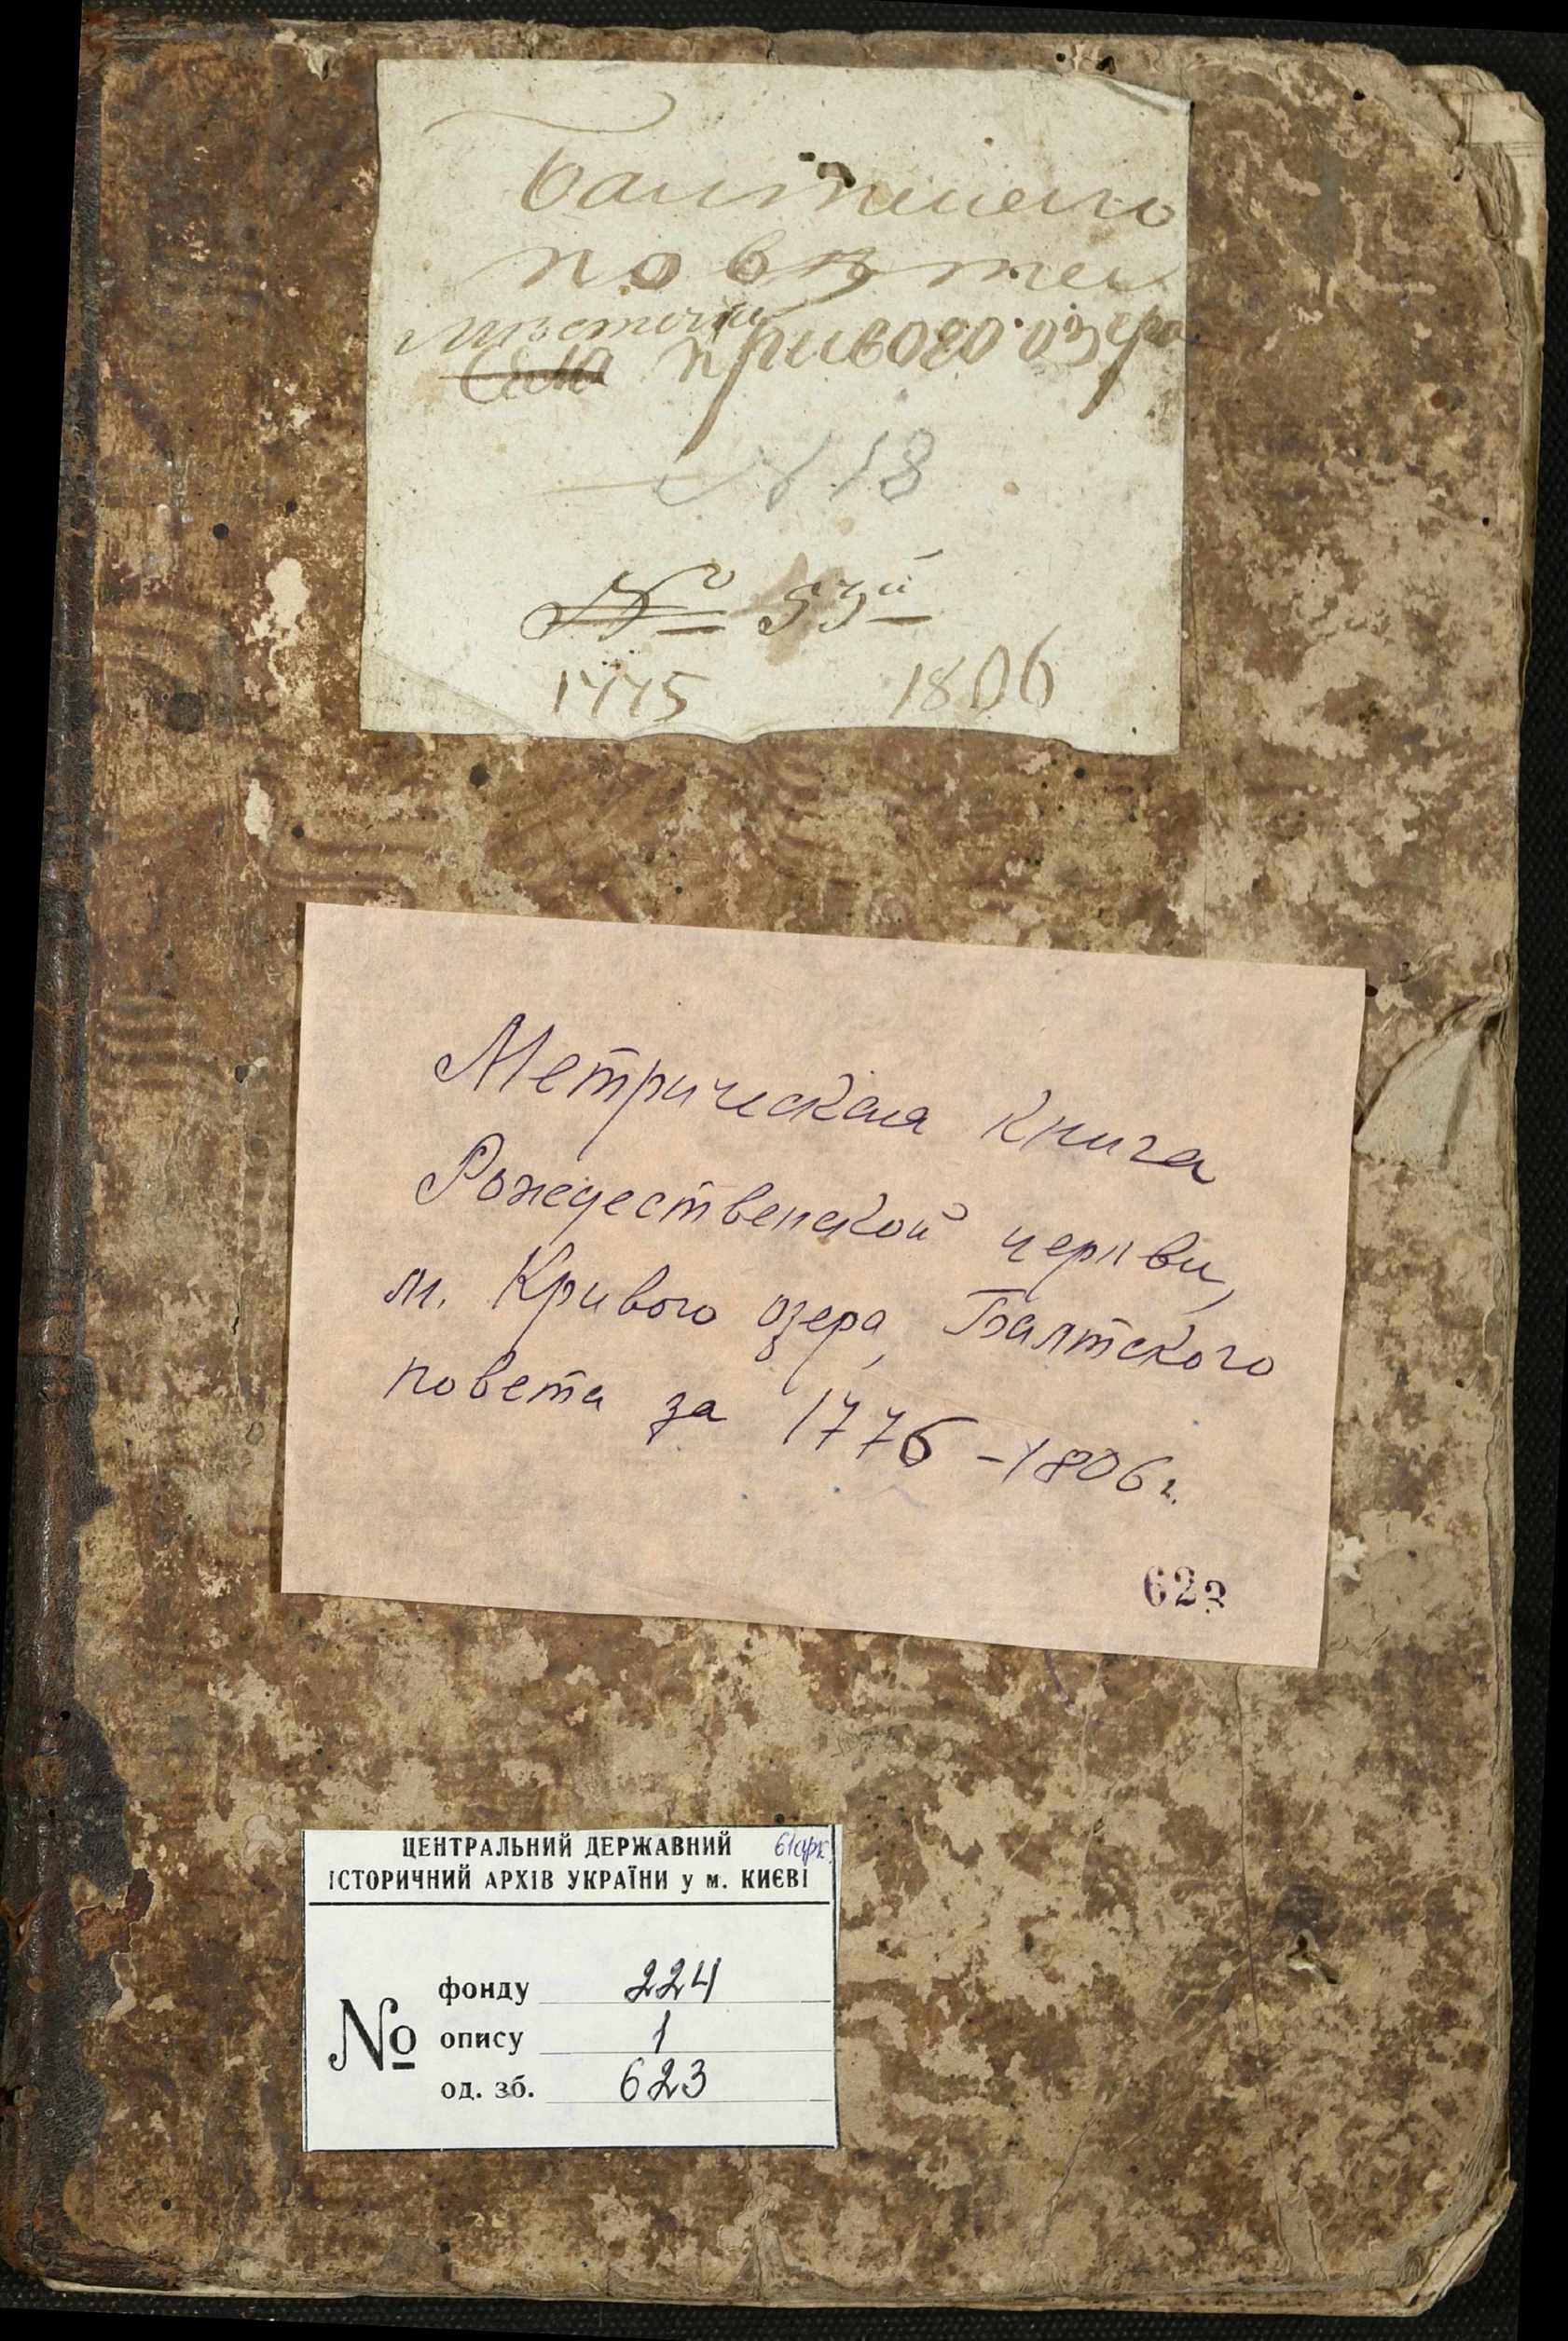 Балтского
повѣта
мѣстечка
Села Кривого озера
№ 18
№ 53й
1775 1806
Метрическая книга
Рождественской церкви,
м. Кривого озера, Балтского
повета за 1776-1806 г.
623
ЦЕНТРАЛЬНИЙ ДЕРЖАВНИЙ 61арк.
ІСТОРИЧНИЙ АРХІВ УКРАЇНИ у м. КИЄВІ
№
фонду 224
опису 1
од. зб. 623